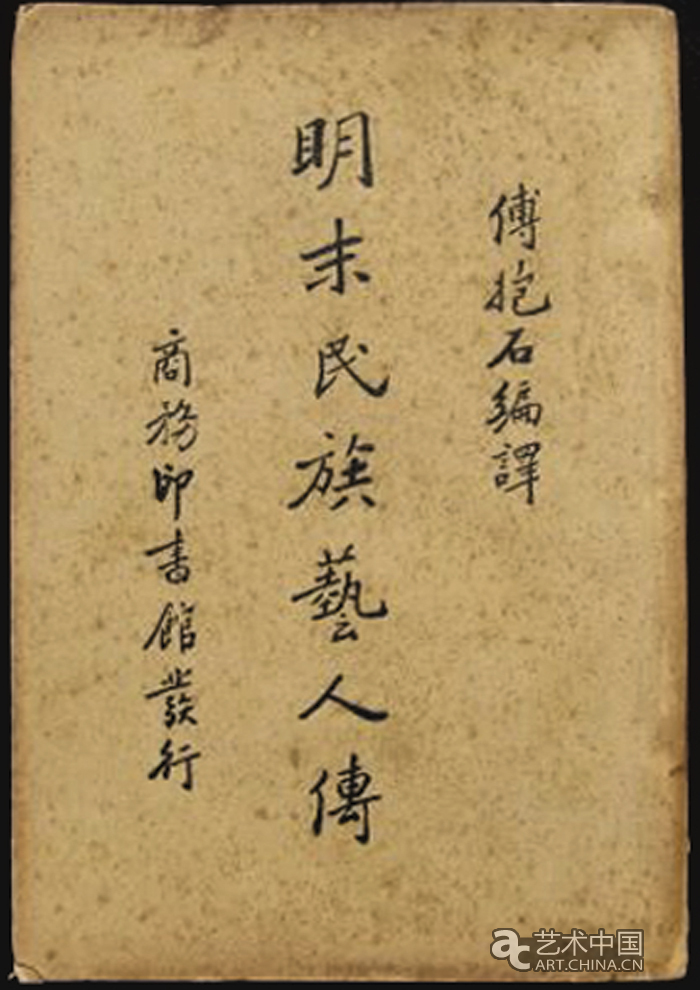 傅抱石編譯
明末民族藝人傳
商務印書館發行
ac 艺术中国
ART.CHINA.CN